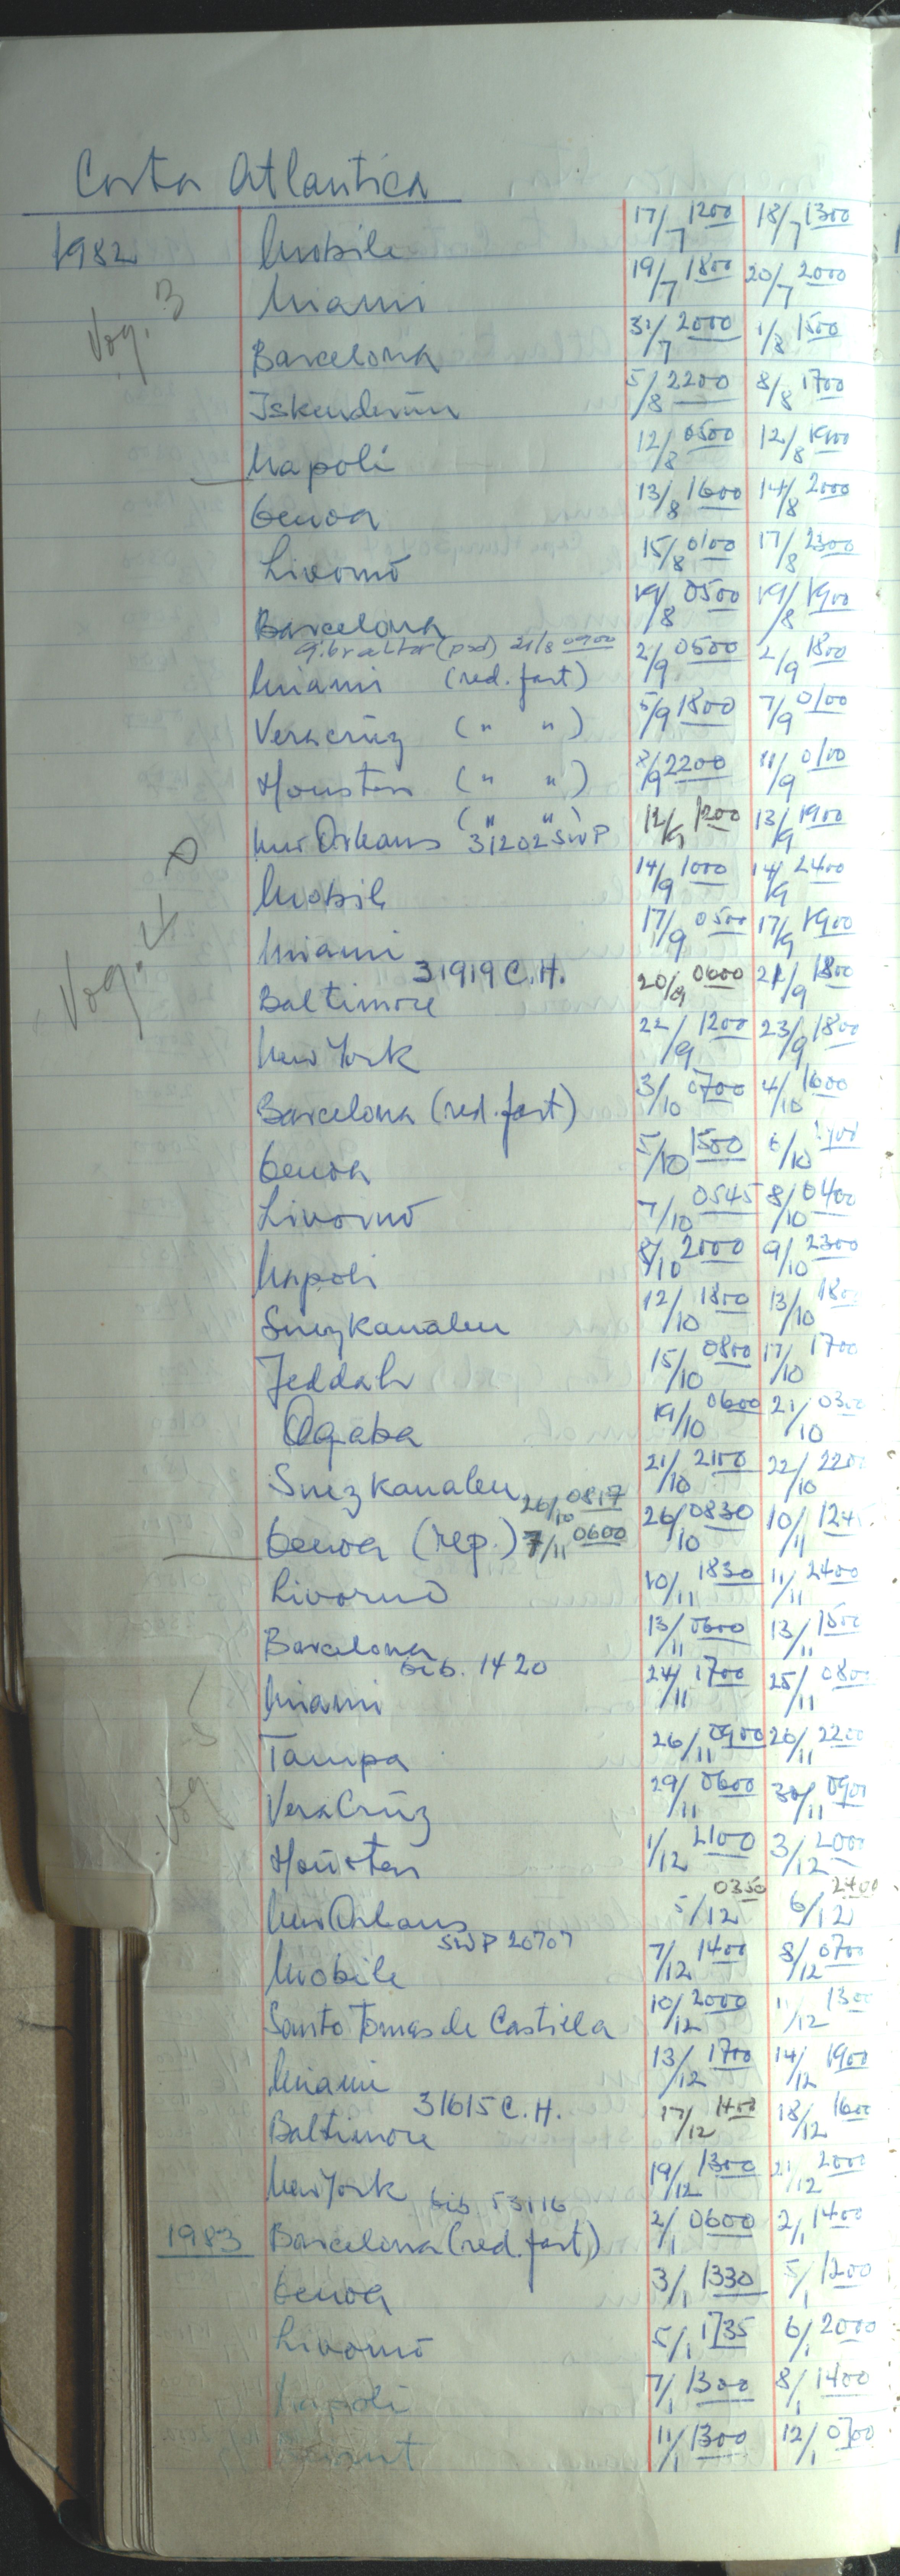 Costa Atlantica
1982 Mobile 17/7 1200 18/7 1300
Miami 19/7 1800 20/7 2000
Voy. 3
Barcelona 31/7 2000 1/8 1500
Iskenderun 5/8 2200 8/8 1700
Napoli 12/8 0500 12/8 1900
Genoa 13/8 1600 14/8 2000
Livorno 15/8 0100 17/8 2300
Barcelona 19/8 0500 19/8 1900
Gibraltar (psd) 21/8 0900
Miami (red. fart) 2/9 0500 2/9 1800
Veracruz (" ") 5/9 1800 7/9 0100
Houston (" ") 8/9 2200 11/9 0100
(" ")
New Orleans 31202 SWP 12/9 1200 13/9 1900
Mobile 14/9 1000 14/9 2400
Voy. 4
Miami 17/9 0500 17/9 1900
31919 C.H.
Baltimore 20/9 0600 21/9 1800
New York 22/9 1200 23/9 1800
Barcelona (red. fart) 3/10 0700 4/10 1600
Genoa 5/10 1500 6/10
Livorno 7/10 0545 8/10 0400
Napoli 8/10 2000 9/10 2300
Suezkanalen 12/10 1800 13/10 1800
Jeddah 15/10 0800 17/10 1700
Aqaba 19/10 0600 21/10 0300
Suezkanalen 21/10 2100 22/10 2200
26/10 0817
Genoa (rep.) 7/11 0600 26/10 0830 10/11
Livorno 10/11 1830 11/11 2400
Barcelona 13/11 0600 13/11 1500
bib. 1420
Miami 24/11 1700 25/11 0800
Tampa 26/11 0900 26/11 2200
Voy 5
VeraCruz 29/11 0600 30/11 0900
Houston 1/12 2100 3/12 2000
New Orleans 5/12 0350 6/12 2400
SWP 20707
Mobile 7/12 1400 8/12 0700
Santo Tomas de Castilla 10/12 2000 11/12 1300
Miami 13/12 1700 14/12 1900
31615 C.H.
Baltimore 17/12 1400 18/12 1600
New York 19/12 1300 21/12 2000
bib 53116
1983 Barcelona (red. fart) 2/1 0600 2/1 1400
Genoa 3/1 1330 5/1 1200
Livorno 5/1 1735 6/1 2000
Napoli 7/1 1300 8/1 1400
11/1 1300 12/1 0700